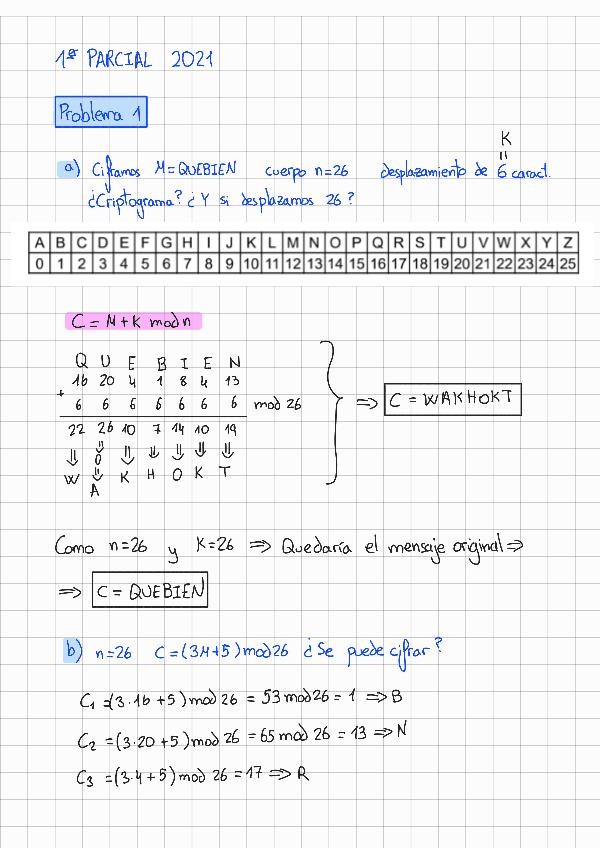 1er PARCIAL 2021
Problema 1
K
=
a) Ciframos M=QUEBIEN cuerpo n=26 desplazamiento de 6 caract.
¿Criptograma? ¿Y si desplazamos 26?
A B C D E F G H I J K L M N O P Q R S T U V W X Y Z
0 1 2 3 4 5 6 7 8 9 10 11 12 13 14 15 16 17 18 19 20 21 22 23 24 25
C = M + K mod n
Q U E B I E N
16 20 4 1 8 4 13
+ 6 6 6 6 6 6 6 mod 26 ⇒ C = WAKHOKT
22 26 10 7 14 10 19
⇓ 0 ⇓ ⇓ ⇓ ⇓ ⇓
W ⇓ K H O K T
A
Como n=26 y K=26 ⇒ Quedaría el mensaje original ⇒
⇒ C = QUEBIEN
b) n=26 C=(3M+5) mod 26 ¿Se puede cifrar?
C1 =(3·16+5) mod 26 = 53 mod 26 = 1 ⇒ B
C2 =(3·20+5) mod 26 = 65 mod 26 = 13 ⇒ N
C3 =(3·4+5) mod 26 = 17 ⇒ R